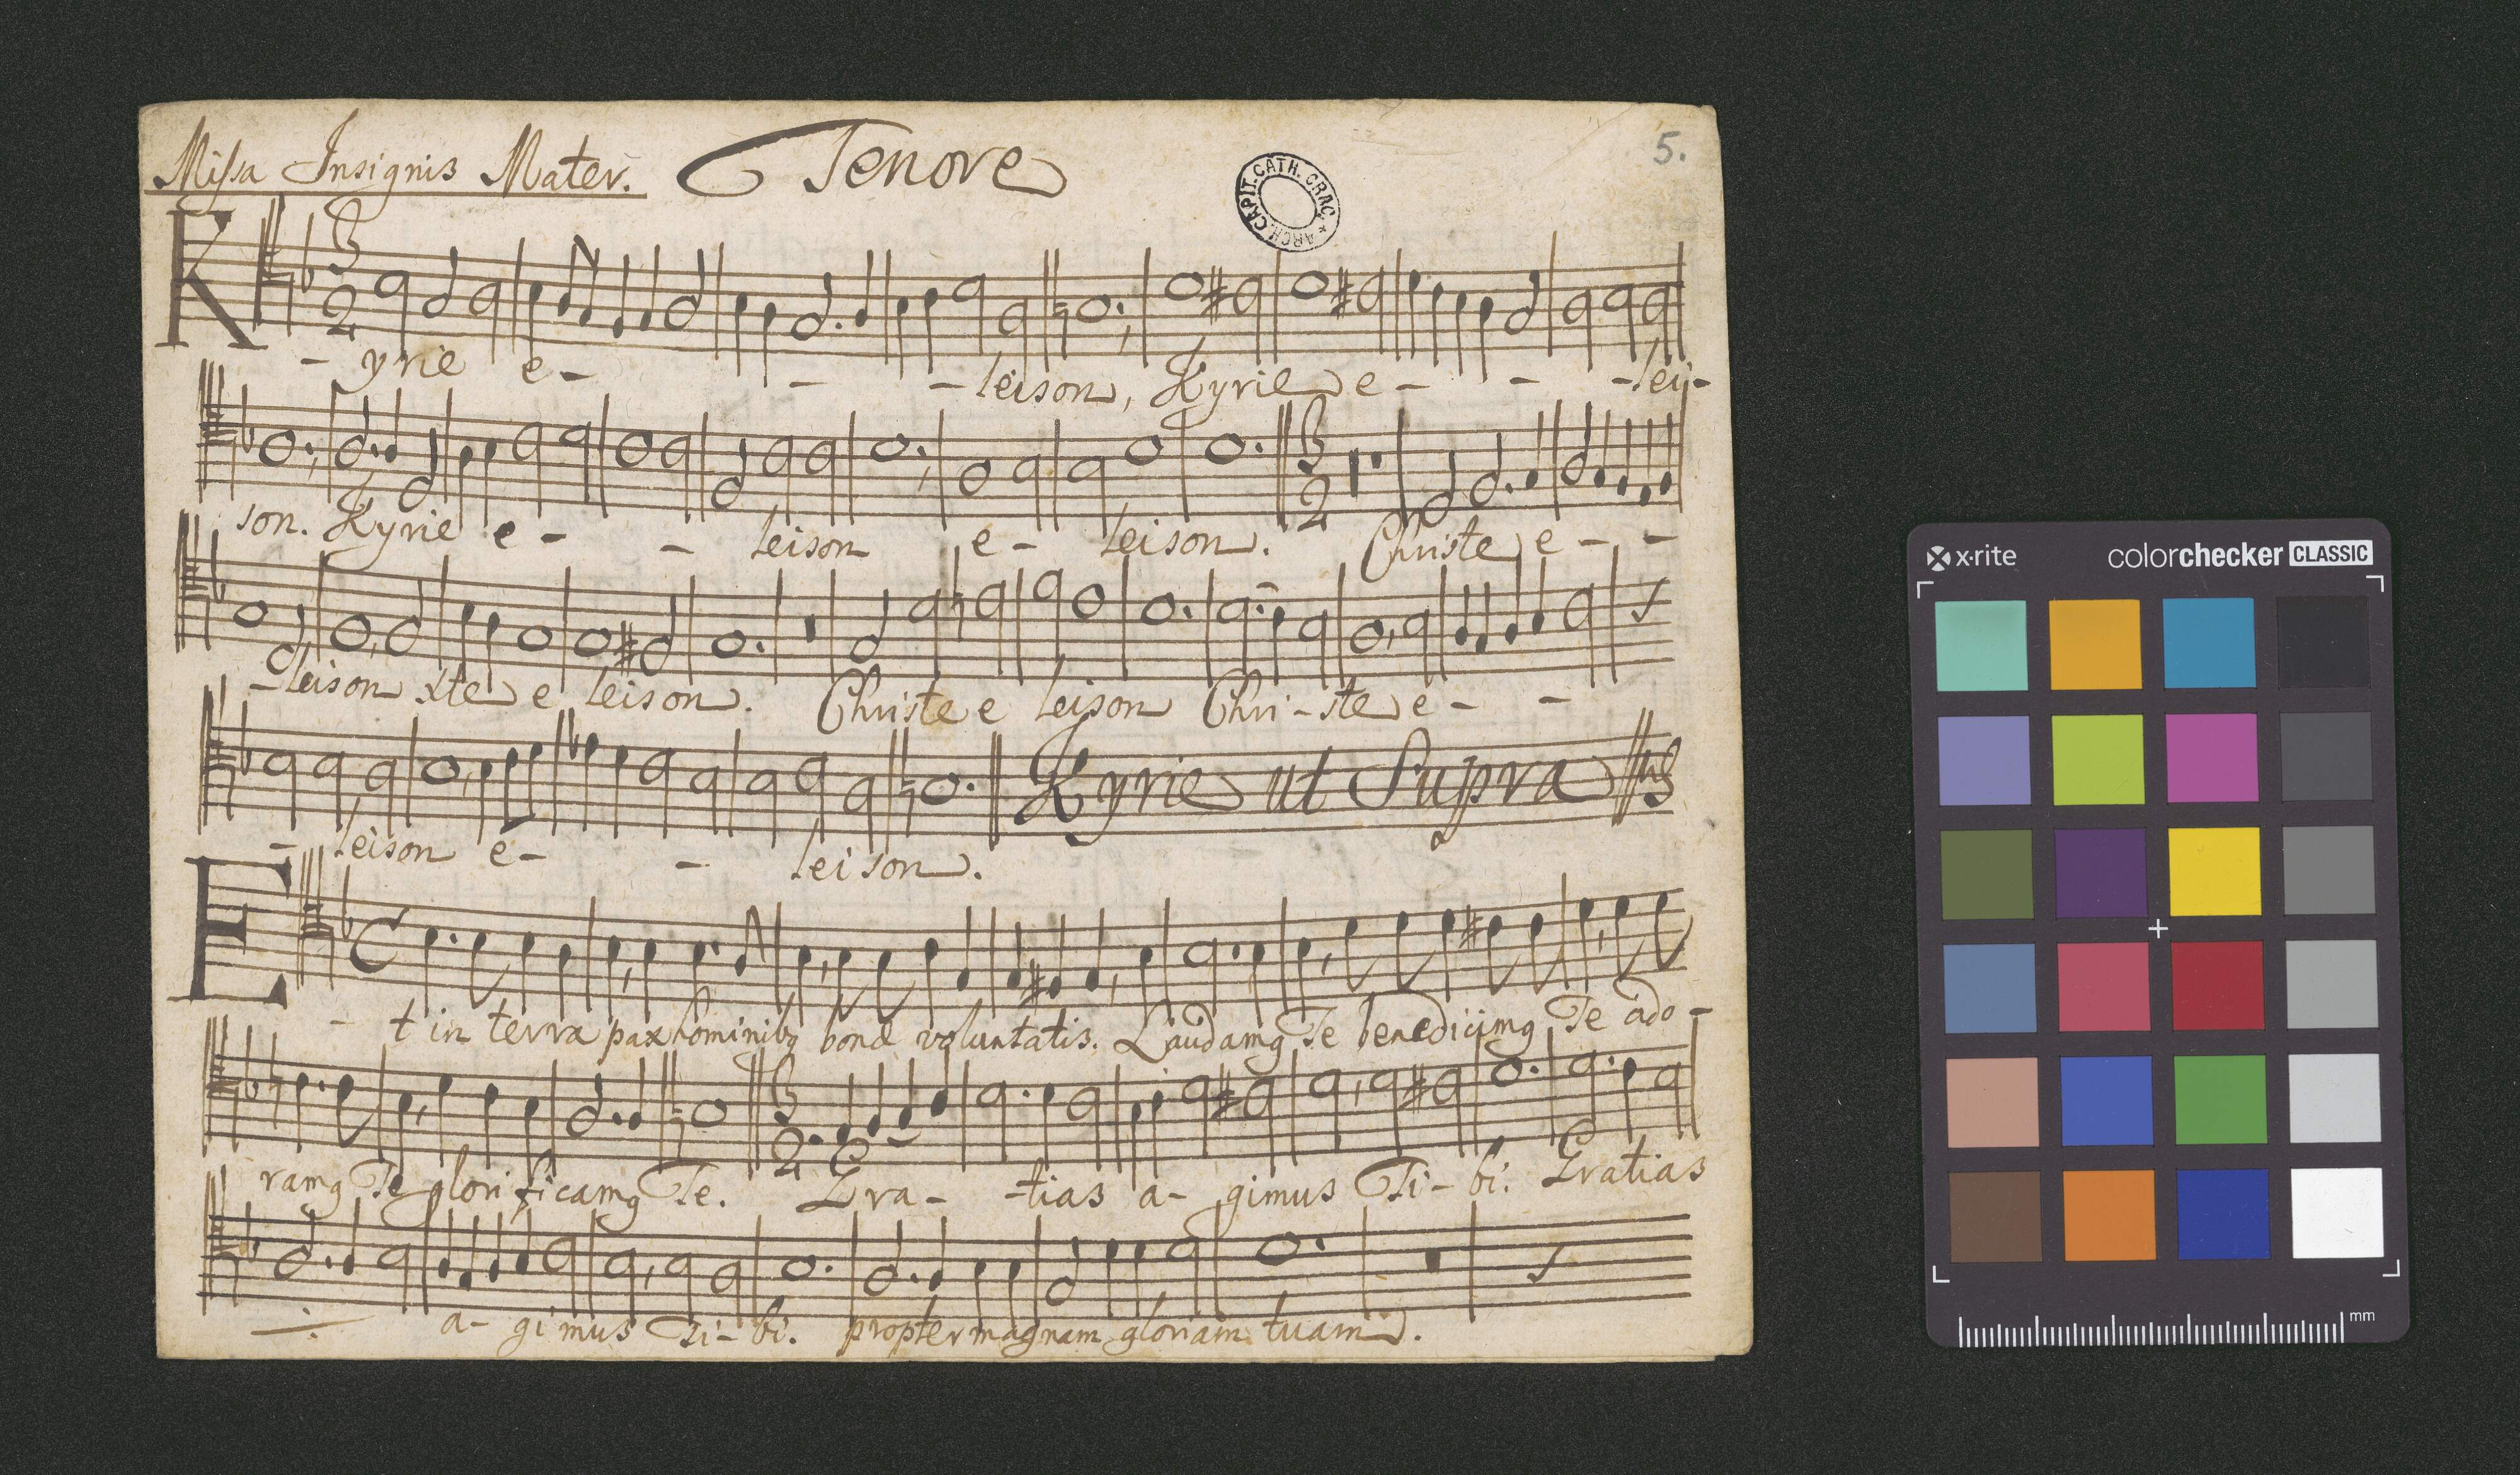 Missa Insignis Mater. Tenore
5.
ARCH. CAPIT. CATH. CRAC.
3
2
K - yrie e - - - leison, Kyrie e - - - lei-
3
2
son. Kyrie e - - leison e - leison. Christe e - -
- leison xte e leison. Christe e leison Chri - ste e - -
Kyrie ut Supra
- leison e - - leison.
C
E - t in terra pax hominibq bonæ voluntatis. Laudamq Te benedicimq Te ado -
3
2
ramq Te glorificamq Te. Gra - - tias a - gimus Ti - bi. Gratias
a - gimus Ti - bi. propter magnam gloriam tuam.
x·rite colorchecker CLASSIC
mm